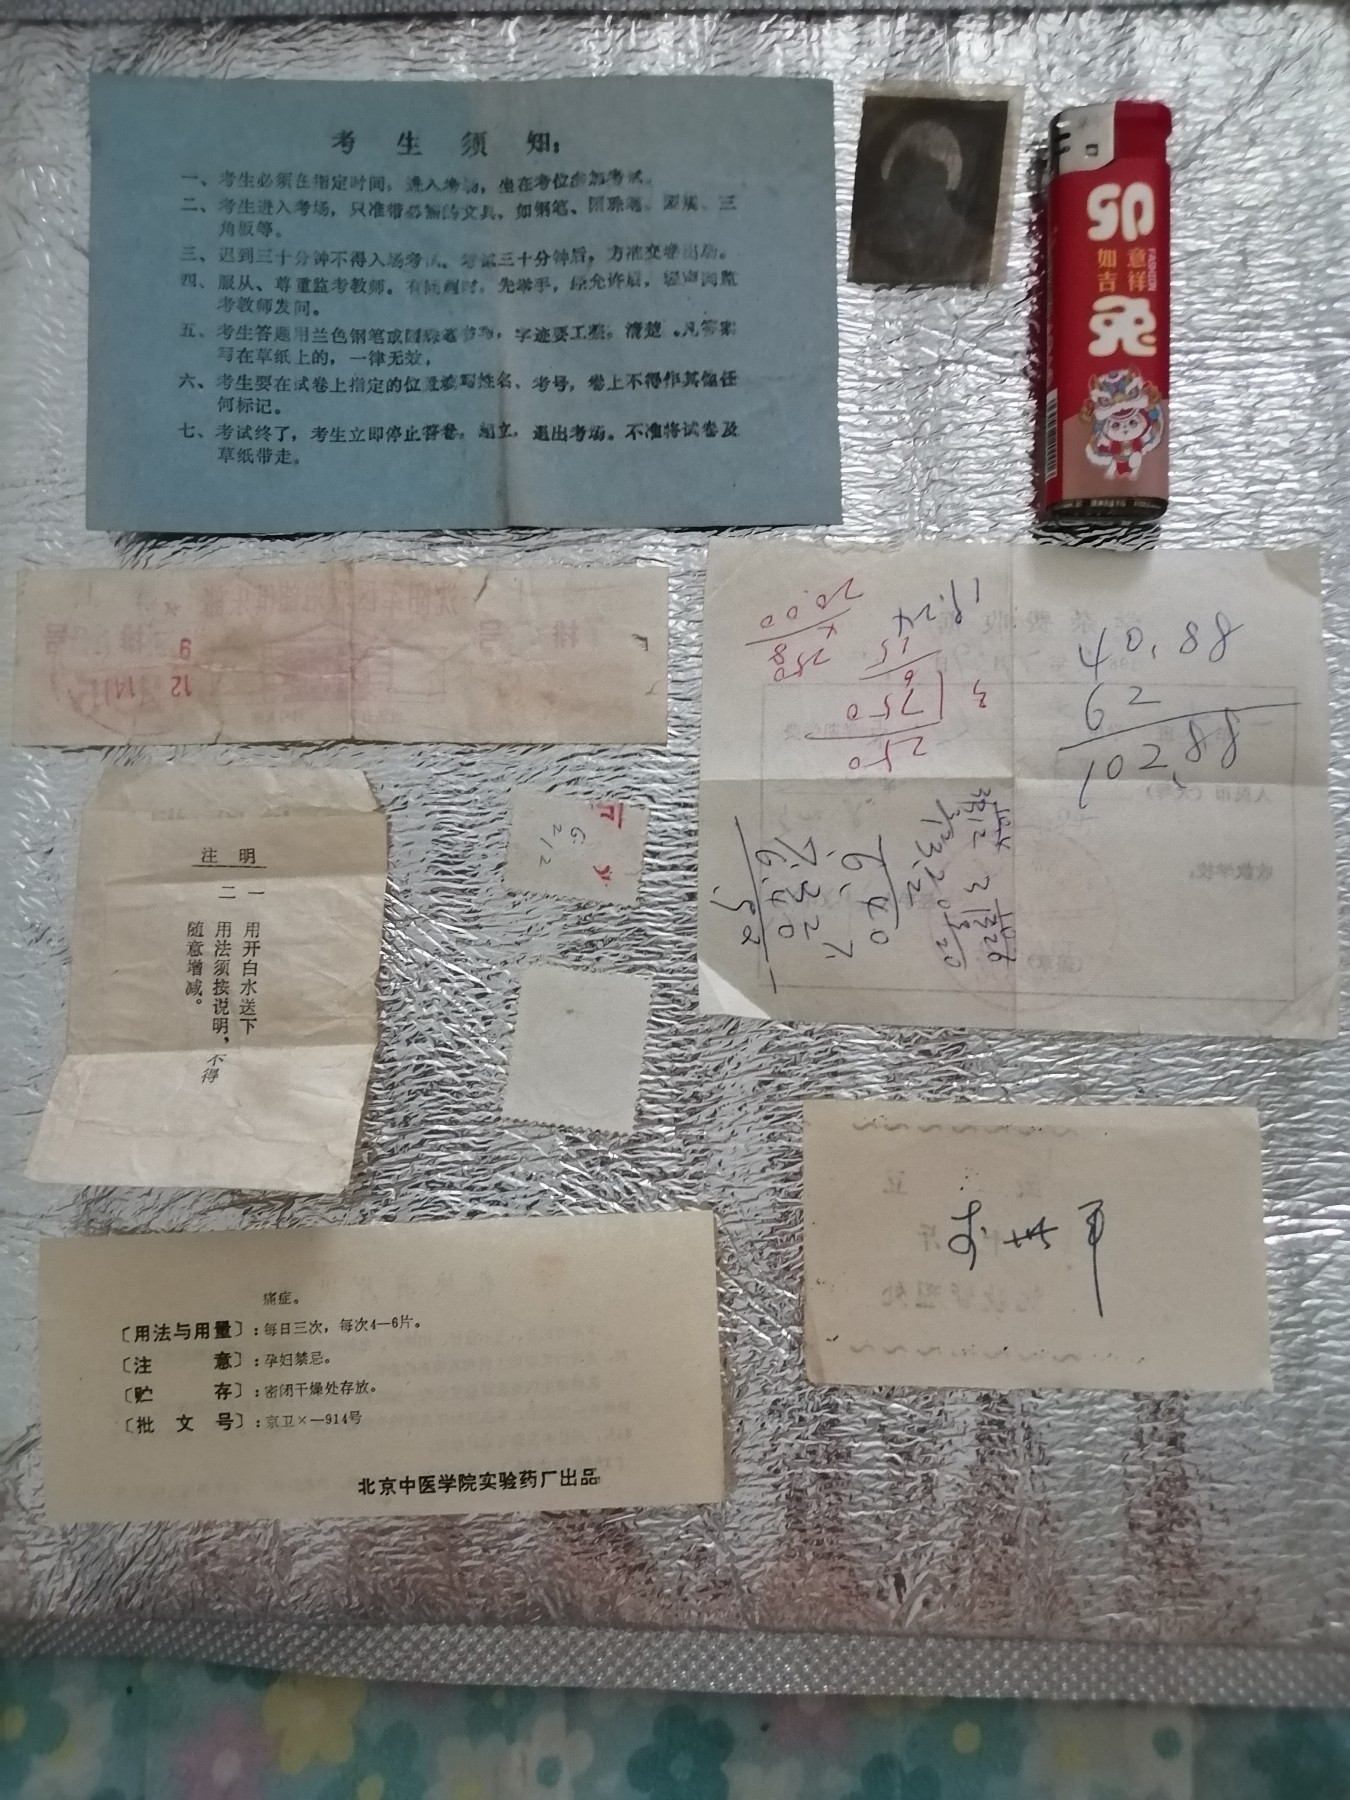 考生须知：
一、考生必须在指定时间，进入考场，坐在考位参加考试。
二、考生进入考场，只准带必需的文具，如钢笔、圆珠笔、圆规、三
角板等。
三、迟到三十分钟不得入场考试。考试三十分钟后，方准交卷出场。
四、服从、尊重监考教师。有问题时，先举手，经允许后，轻声向监
考教师发问。
五、考生答题用兰色钢笔或圆珠笔书写，字迹要工整，清楚。凡答案
写在草纸上的，一律无效，
六、考生要在试卷上指定的位置填写姓名、考号，卷上不得作其他任
何标记。
七、考试终了，考生立即停止答卷，起立，退出考场。不准将试卷及
草纸带走。
卯
如意
吉祥
兔
9
12
(14)
20.00
8
250
18.24
15
6
750
250
3
40.88
62
102.88
6.40
7.32
6.40
注明
一 用开白水送下
二 用法须按说明，不得
随意增减。
17
6
212
收款学校：
人民币（大写）
痛症。
〔用法与用量〕：每日三次，每次4—6片。
〔注意〕：孕妇禁忌。
〔贮存〕：密闭干燥处存放。
〔批文号〕：京卫×—914号
北京中医学院实验药厂出品